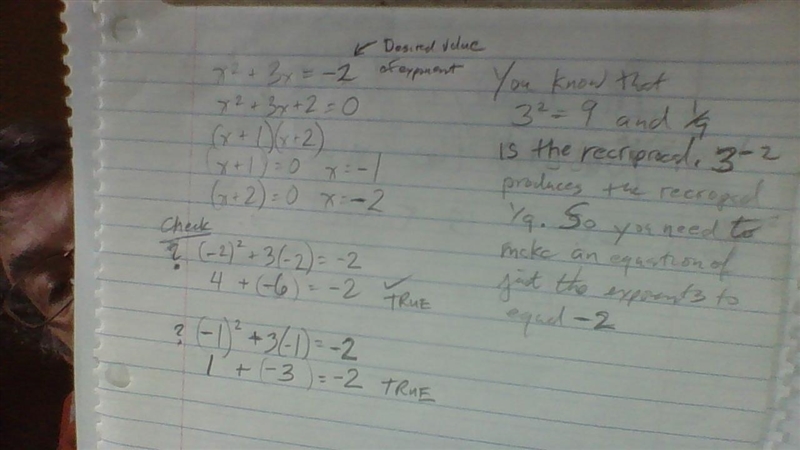 x² + 3x = -2 ↙ Desired Value
of exponent
x² + 3x + 2 = 0
(x + 1)(x + 2)
(x + 1) = 0 x = -1
(x + 2) = 0 x = -2
Check
? (-2)² + 3(-2) = -2
4 + (-6) = -2 ✓ TRUE
? (-1)² + 3(-1) = -2
1 + (-3) = -2 TRUE
You know that
3² = 9 and 1/9
is the reciprocal. 3⁻²
produces the
1/9. So you need to
make an equation of
just the exponents to
equal -2